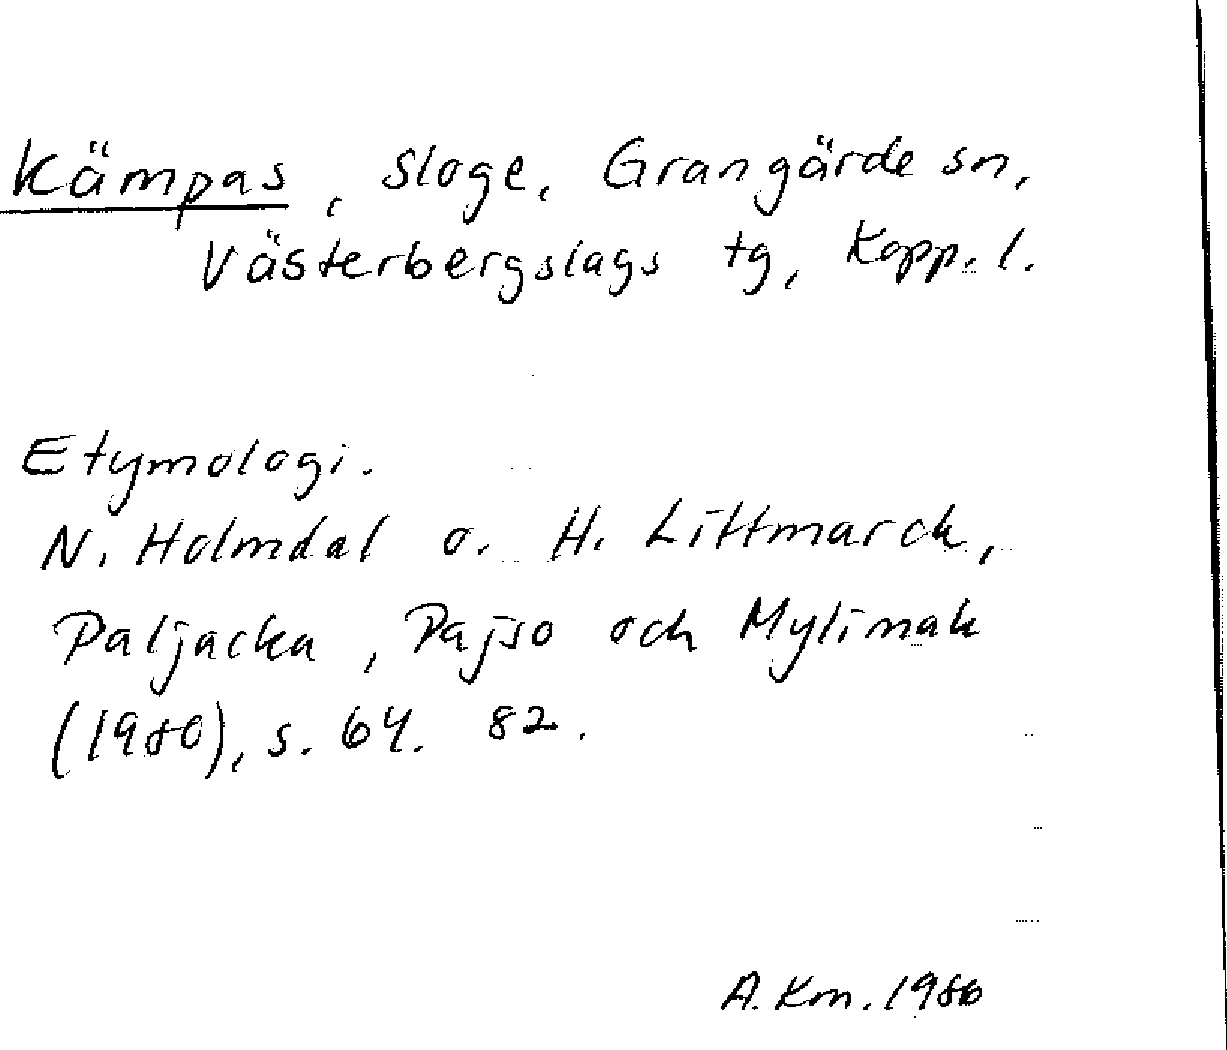 Kämpas, sloge, Grangärde sn,
Västerbergslags tg, Kopp. l.
Etymologi.
N. Holmdal o. H. Littmarck,
Paljacka, Pajso och Mylimak
(1980), s. 64. 82.
A. Km. 1986